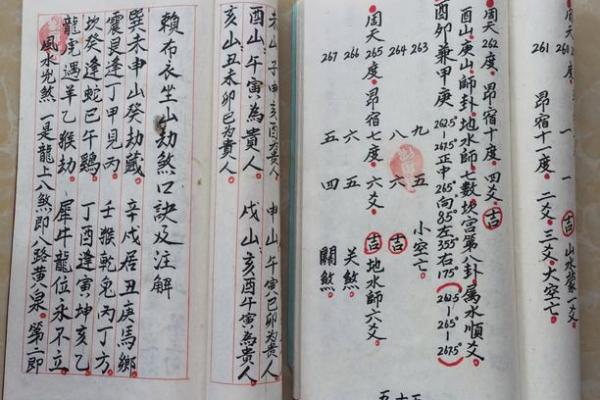 周天 260 一 一 吉 山水蒙一爻
261 昴宿十一度。二爻。三爻。大空亡。
周天262度。昴宿十度。四爻。吉
酉山、庚山、師卦、地水師七數坎宮第八卦屬水順爻。
酉卯兼甲庚 262.5°-267.5°正中265°向85°左355°右175°(262.5-265°-265°-267.5°)
263 九 五 小空亡。
264 八 六 吉
周天265度。昴宿七度。六爻。吉 地水師六爻
266 六 五 关煞。
267 五 四 關煞。
五十三
酉山午寅為貴人。 戌山亥酉午寅為貴人
亥山丑未卯巳为貴人。
賴布衣坐山劫煞口訣及注解
巽未申山癸劫藏 辛戌居丑庚馬鄉
震艮逢丁甲見丙 壬猴乾兔丙丁方
坎癸逢蛇巳午鷄 丁酉逢寅坤亥乙
龍虎遇羊乙猴劫 犀牛龍位永不立
風水兇煞 一是龍上八煞即八路黄八泉。第二即